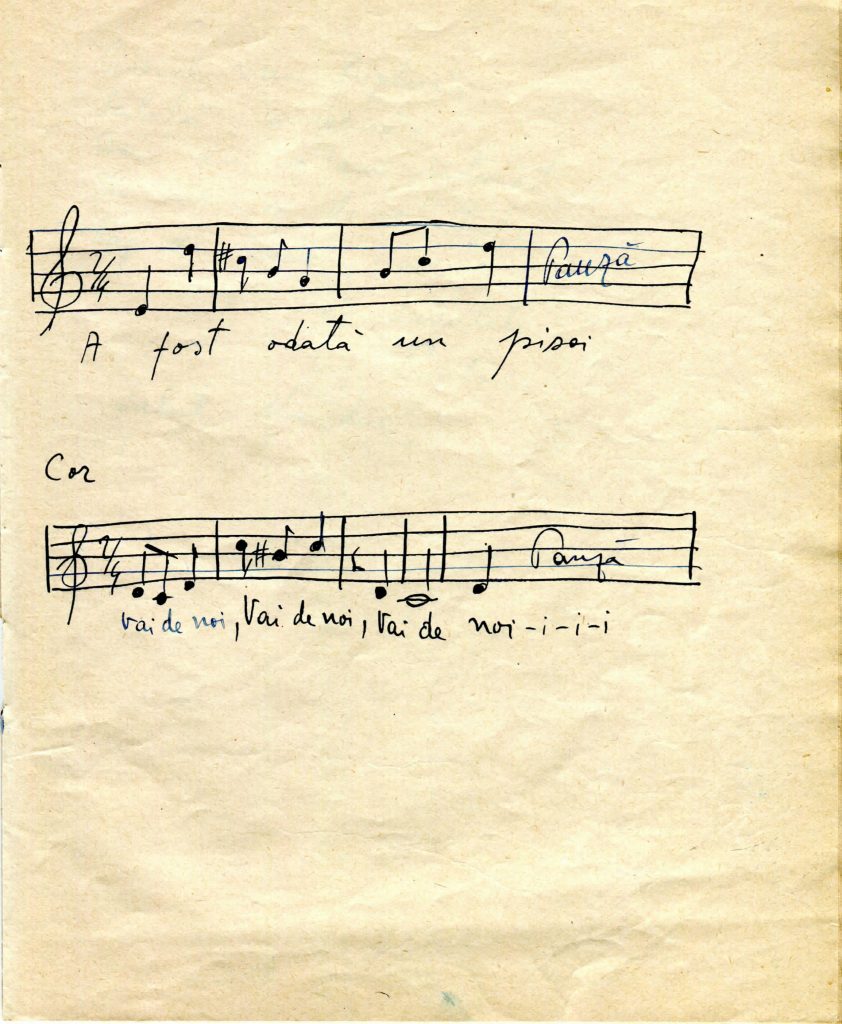 2/4 Pauză
A fost odată un pisoi
Cor
2/4 Pauză
vai de noi, Vai de noi, Vai de noi-i-i-i